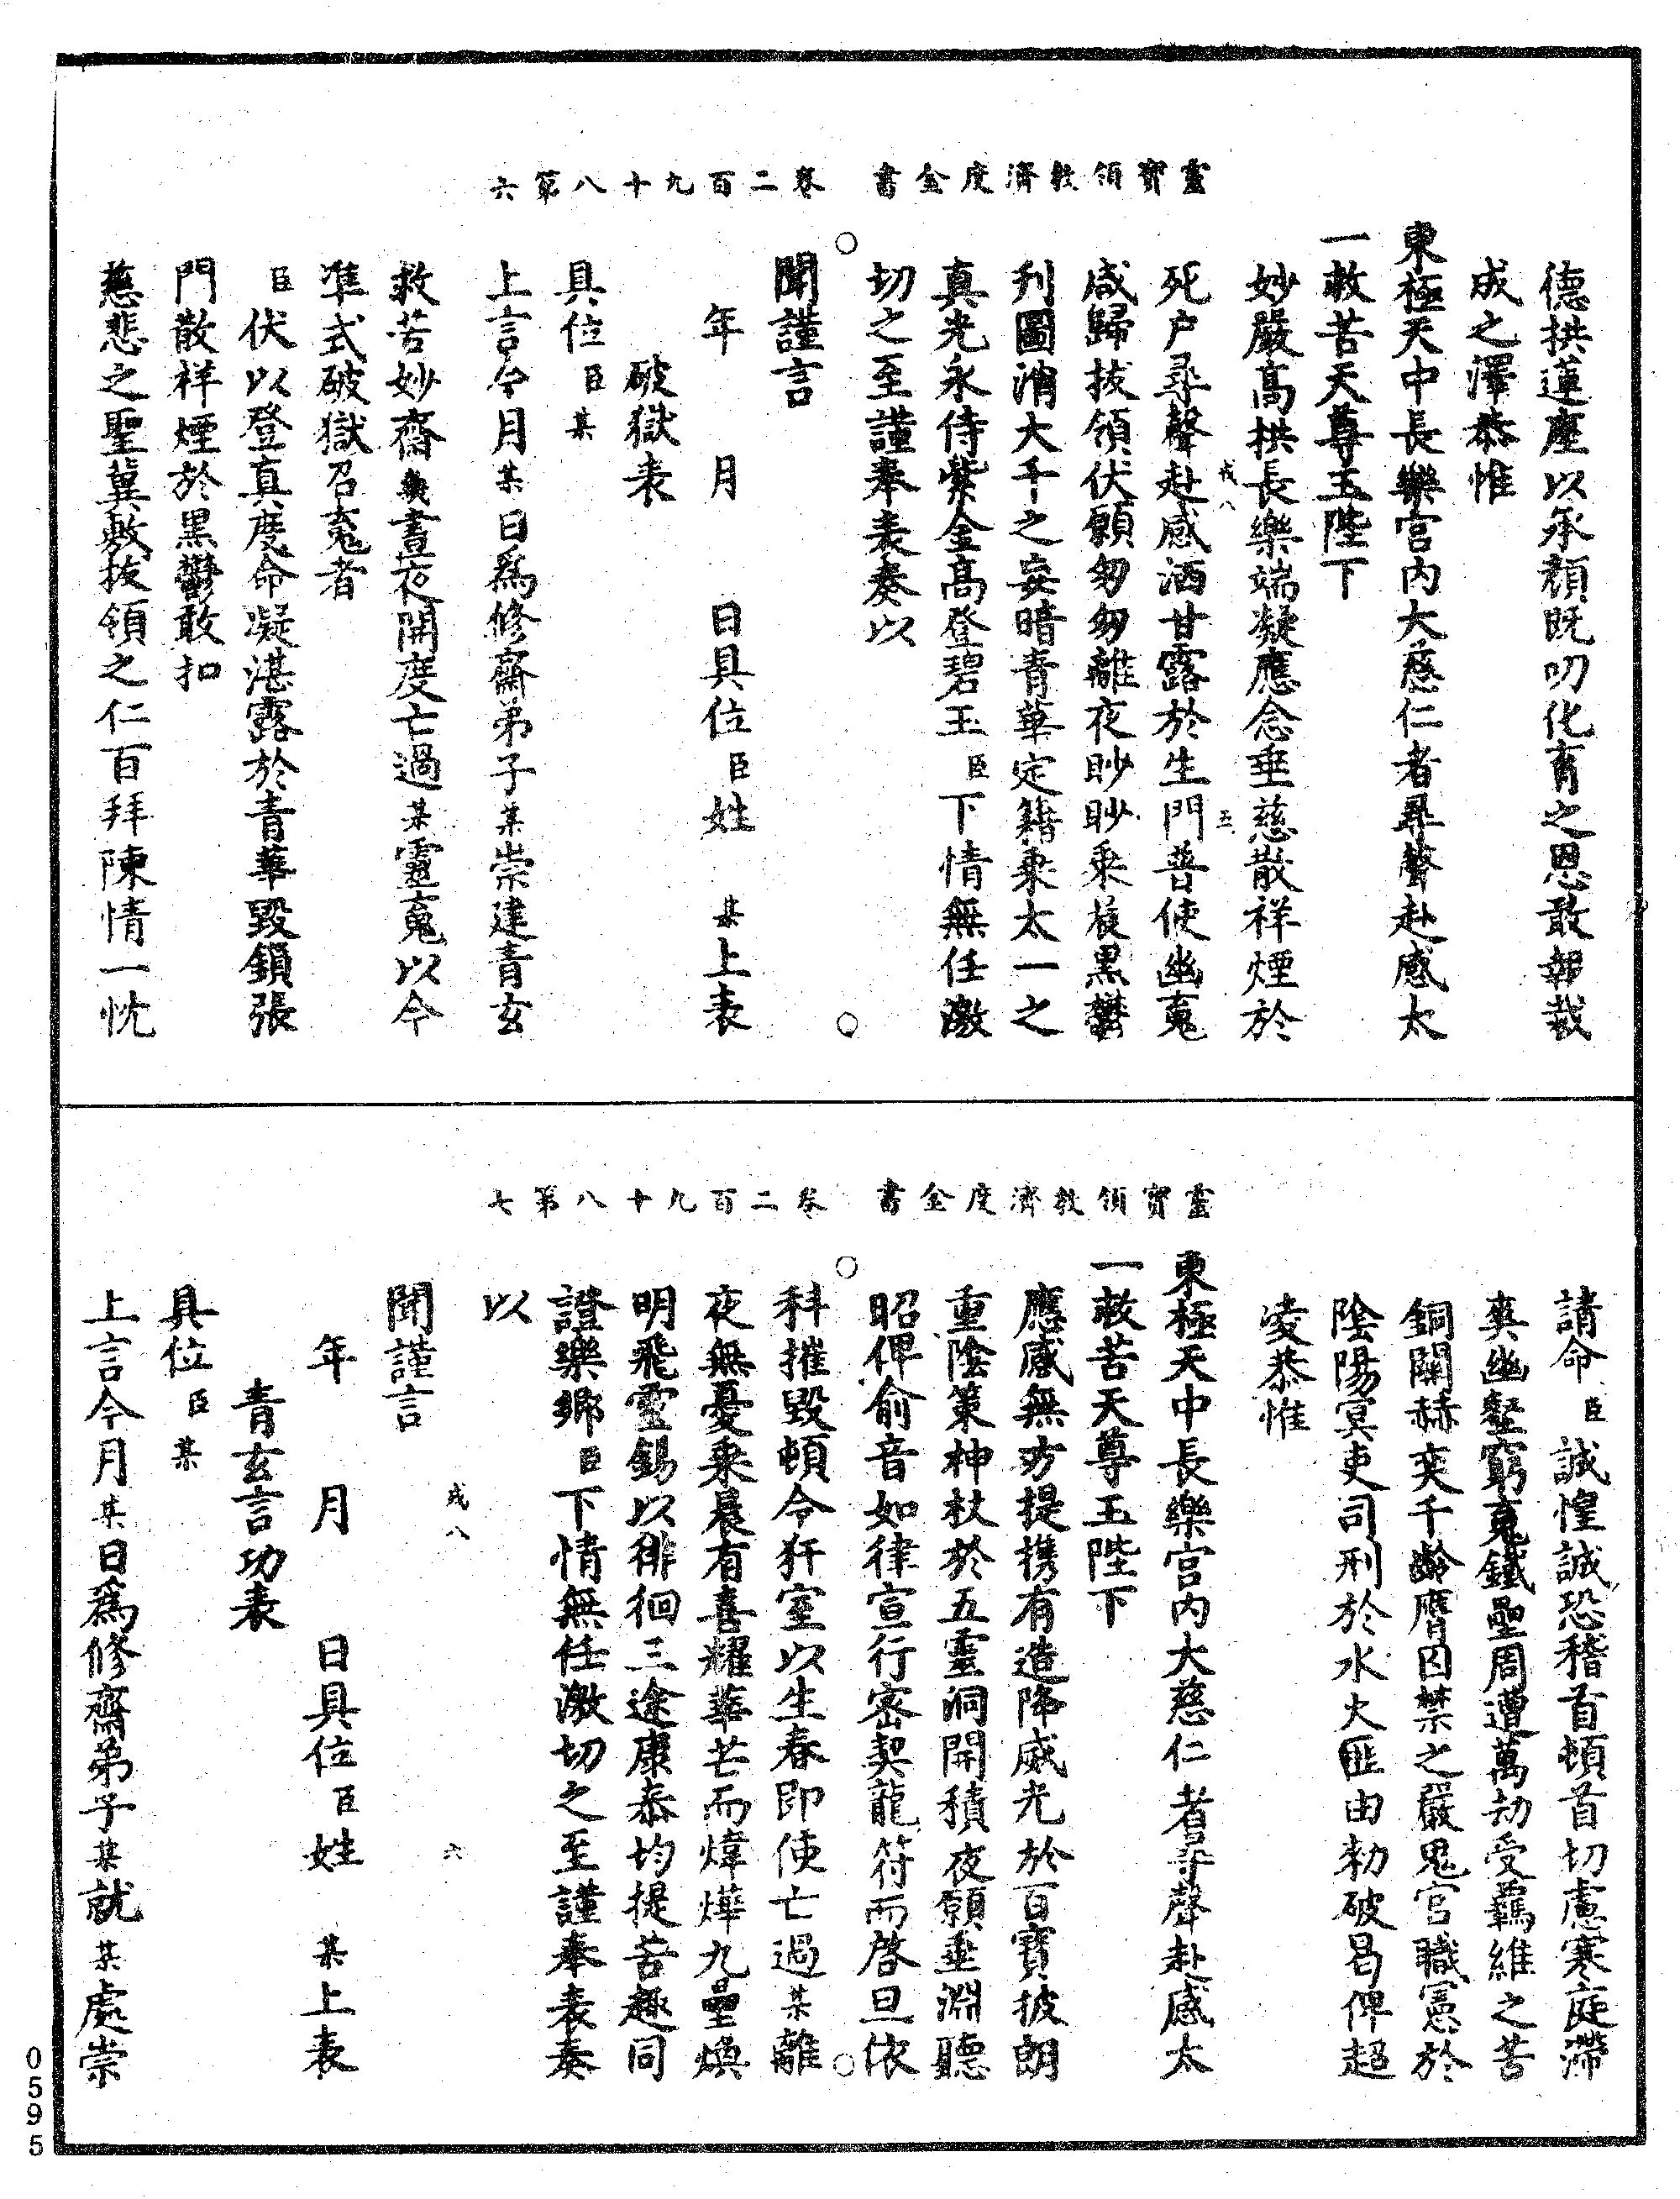 靈寶領教濟度金書　卷二百九十八第六
德拱蓮座以承顏既叨化育之恩敢報裁
成之澤恭惟
東極天中長樂宮內大慈仁者尋聲赴感太
一救苦天尊玉陛下
妙嚴高拱長樂端凝應念垂慈散祥煙於
戎八　五
死户尋聲赴感洒甘露於生門普使幽䰟
咸歸拔領伏願匆匆離夜眇眇乘梭黑欝
刋圖消大千之妄暗青華定籍乘太一之
真光永侍紫金高登碧玉臣下情無任激
切之至謹奉表奏以
聞謹言
年　月　日具位臣姓　某上表
破獄表
具位臣某
上言今月某日爲修齋弟子某崇建青玄
救苦妙齋幾晝夜開度亡過某靈䰟以今
准式破獄召䰟者
臣伏以登真度命凝湛露於青華毀鎖張
門散祥煙於黑欝敢扣
慈悲之聖冀敷拔領之仁百拜陳情一忱
靈寶領教濟度金書　卷二百九十八第七
請命臣誠惶誠恐稽首頓首切慮寒庭滯
爽幽壑窮䰟鐵壘周遭萬劫受羈維之苦
銅關赫奕千齡膺囚禁之嚴鬼官職憲於
陰陽冥吏司刑於水火匪由勑破曷俾超
凌恭惟
東極天中長樂宮內大慈仁者尋聲赴感太
一救苦天尊玉陛下
應感無方提携有造降威光於百寶披朗
重陰策神杖於五靈洞開積夜願垂淵聽
昭俾俞音如律宣行密契龍符而啓旦依
科摧毀頓令犴室以生春即使亡過某離
夜無憂乘晨有喜耀華芒而煒燁九壘煥
明飛靈錫以徘徊三途康泰均提苦趣同
證樂鄉臣下情無任激切之至謹奉表奏
以
聞謹言
戎八　六
年　月　日具位臣姓　某上表
青玄言功表
具位臣某
上言今月某日爲修齋弟子某就某處崇
0595